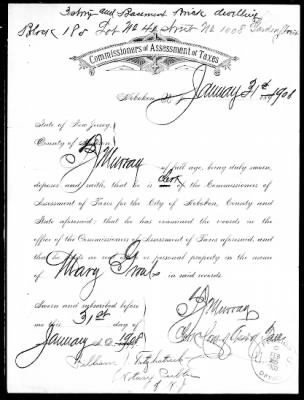 3 story and Basement Brick dwelling
Block 188 Lot No 4 Street No 1008 Garden Street
Commissioners of Assessment of Taxes.
Hoboken, N. J. January 31st 1908
State of New Jersey,
County of Hudson.
Murray of full age, being duly sworn,
deposes and saith, that he is Clerk of the Commissioners of
Assessment of Taxes for the City of Hoboken, County and
State aforesaid; that he has examined the records in the
office of the Commissioners of Assessment of Taxes aforesaid, and
that he finds no real or personal property in the name
of Mary in said records.
Sworn and subscribed before
me this 31st day of
January A.D. 1908
Murray
Clerk
William Fitzpatrick
Notary Public
of N J